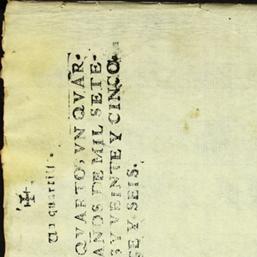 Un quartillo.
QVARTO, VN QVAR-
AÑOS DE MIL SETE-
S Y VEINTE Y CINCO.
SE Y SEIS.